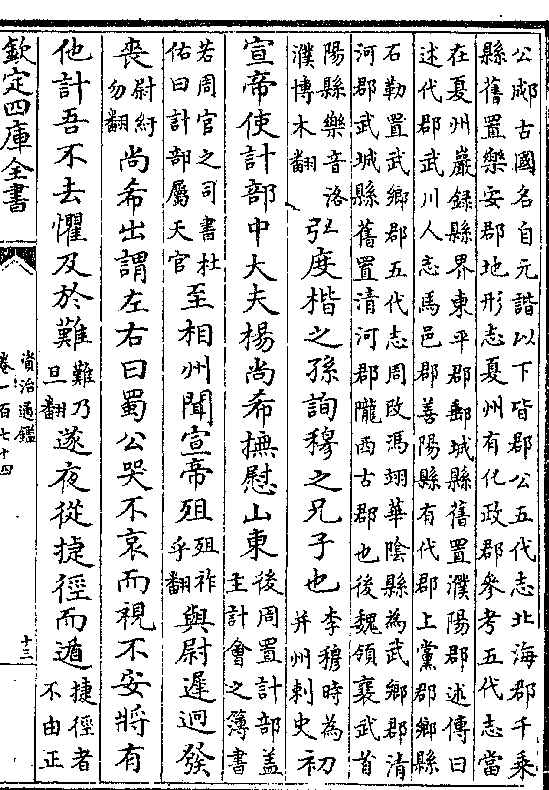 公郕古國名自元諧以下皆郡公五代志北海郡千乗
縣舊置樂安郡地形志夏州有化政郡參考五代志當
在夏州巖録縣界東平郡鄆城縣舊置濮陽郡述傳曰
述代郡武川人志馬邑郡善陽縣有代郡上黨郡鄉縣
石勒置武鄉郡五代志周改馮翊華陰縣為武鄉郡清
河郡武城縣舊置清河郡隴西古郡也後魏領襄武首
陽縣樂音洛
濮博木翻
弘度楷之孫詢穆之兄子也
李穆時為
并州刺史
初
宣帝使計部中大夫楊尚希撫慰山東
後周置計部蓋
主計會之簿書
若周官之司書杜
佑曰計部屬天官
至相州聞宣帝殂
殂祚
乎翻
與尉遲迥發
喪
尉紆
勿翻
尚希出謂左右曰蜀公哭不哀而視不安將有
他計吾不去懼及於難
難乃
旦翻
遂夜從捷徑而遁
捷徑者
不由正
欽定四庫全書
資治通鑑
卷一百七十四
十三